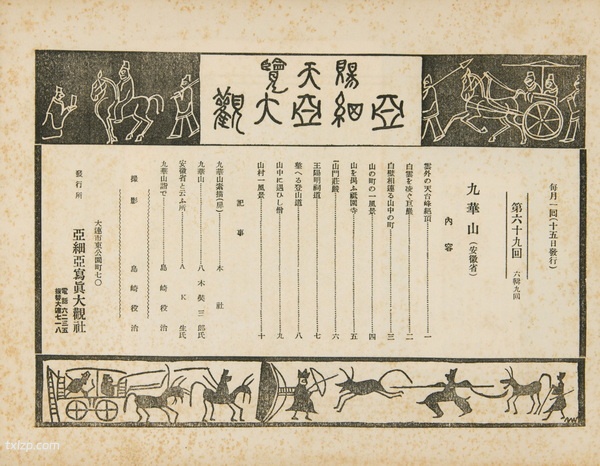 賜天覽
亞細亞大觀
每月一回(十五日發行)
第六十九回 六輯九回
九華山(安徽省)
內容
雲外の天台峰絶頂 一
白雲を凌ぐ巨巖 二
白壁相連る山中の町 三
山の町の一風景 四
山を 祇園寺 五
山門莊嚴 六
王陽明祠道 七
整へる登山道 八
山中に遇ひし僧 九
山村一風景 十
記事
九華山素描(扉) 本社
九華山 八木奘三郎氏
安徽省と云ふ所 A K 生氏
九華山詣で 島崎役治
撮影 島崎役治
發行所
大連市東公園町七〇
亞細亞寫眞大觀社
電話六二三五
振替大連七一八
txizp.com